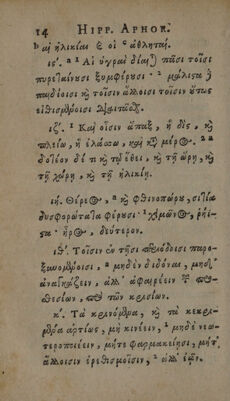 14 HIPP. APHOR.
καὶ ἡλικίαι ἢ οἱ ἀθληταί.
ις΄. Αἱ ὑγραὶ δίαιται πᾶσι τοῖσι
πυρεταίνουσι ξυμφέρουσι· μάλιστα
παιδίοισι καὶ τοῖσιν ἄλλοισι τοῖσιν οὕτως
εἰθισμένοισι διαιτᾶσθαι.
ιζ΄. Καὶ οἷσιν ἅπαξ, ἢ δὶς, καὶ
πλείω, ἢ ἐλάσσω, καὶ κατὰ μέρος·
δοτέον δέ τι καὶ τῷ ἔθει, καὶ τῇ ὥρῃ, καὶ
τῇ χώρῃ, καὶ τῇ ἡλικίῃ.
ιη. Θέρεος, καὶ φθινοπώρου, σιτία
δυσφορώτατα φέρουσι· χειμῶνος, ῥηΐ-
τα· ἦρος, δεύτερον.
ιθ΄. Τοῖσιν ἐν τῇσι περιόδοισι παρο-
ξυνομένοισι, μηδὲν διδόναι, μηδ'
ἀναγκάζειν, ἀλλ' ἀφαιρέειν τῶν προσ-
θεσίων, πρὸ τῶν κρίσίων.
κ΄. Τὰ κρινόμενα, καὶ τὰ κεκρι-
μένα ἀρτίως, μὴ κινέειν, μηδὲ νεω-
τεροποιέειν, μήτε φαρμακείῃσι, μήτ'
ἄλλοισιν ἐρεθισμοῖσιν, ἀλλ' ἐᾷν.